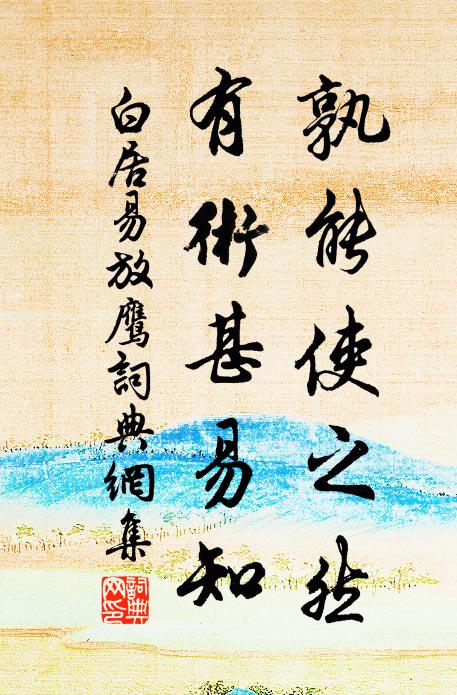 孰能使之然
有術甚易知
白居易放鹰詞典網集
詞典